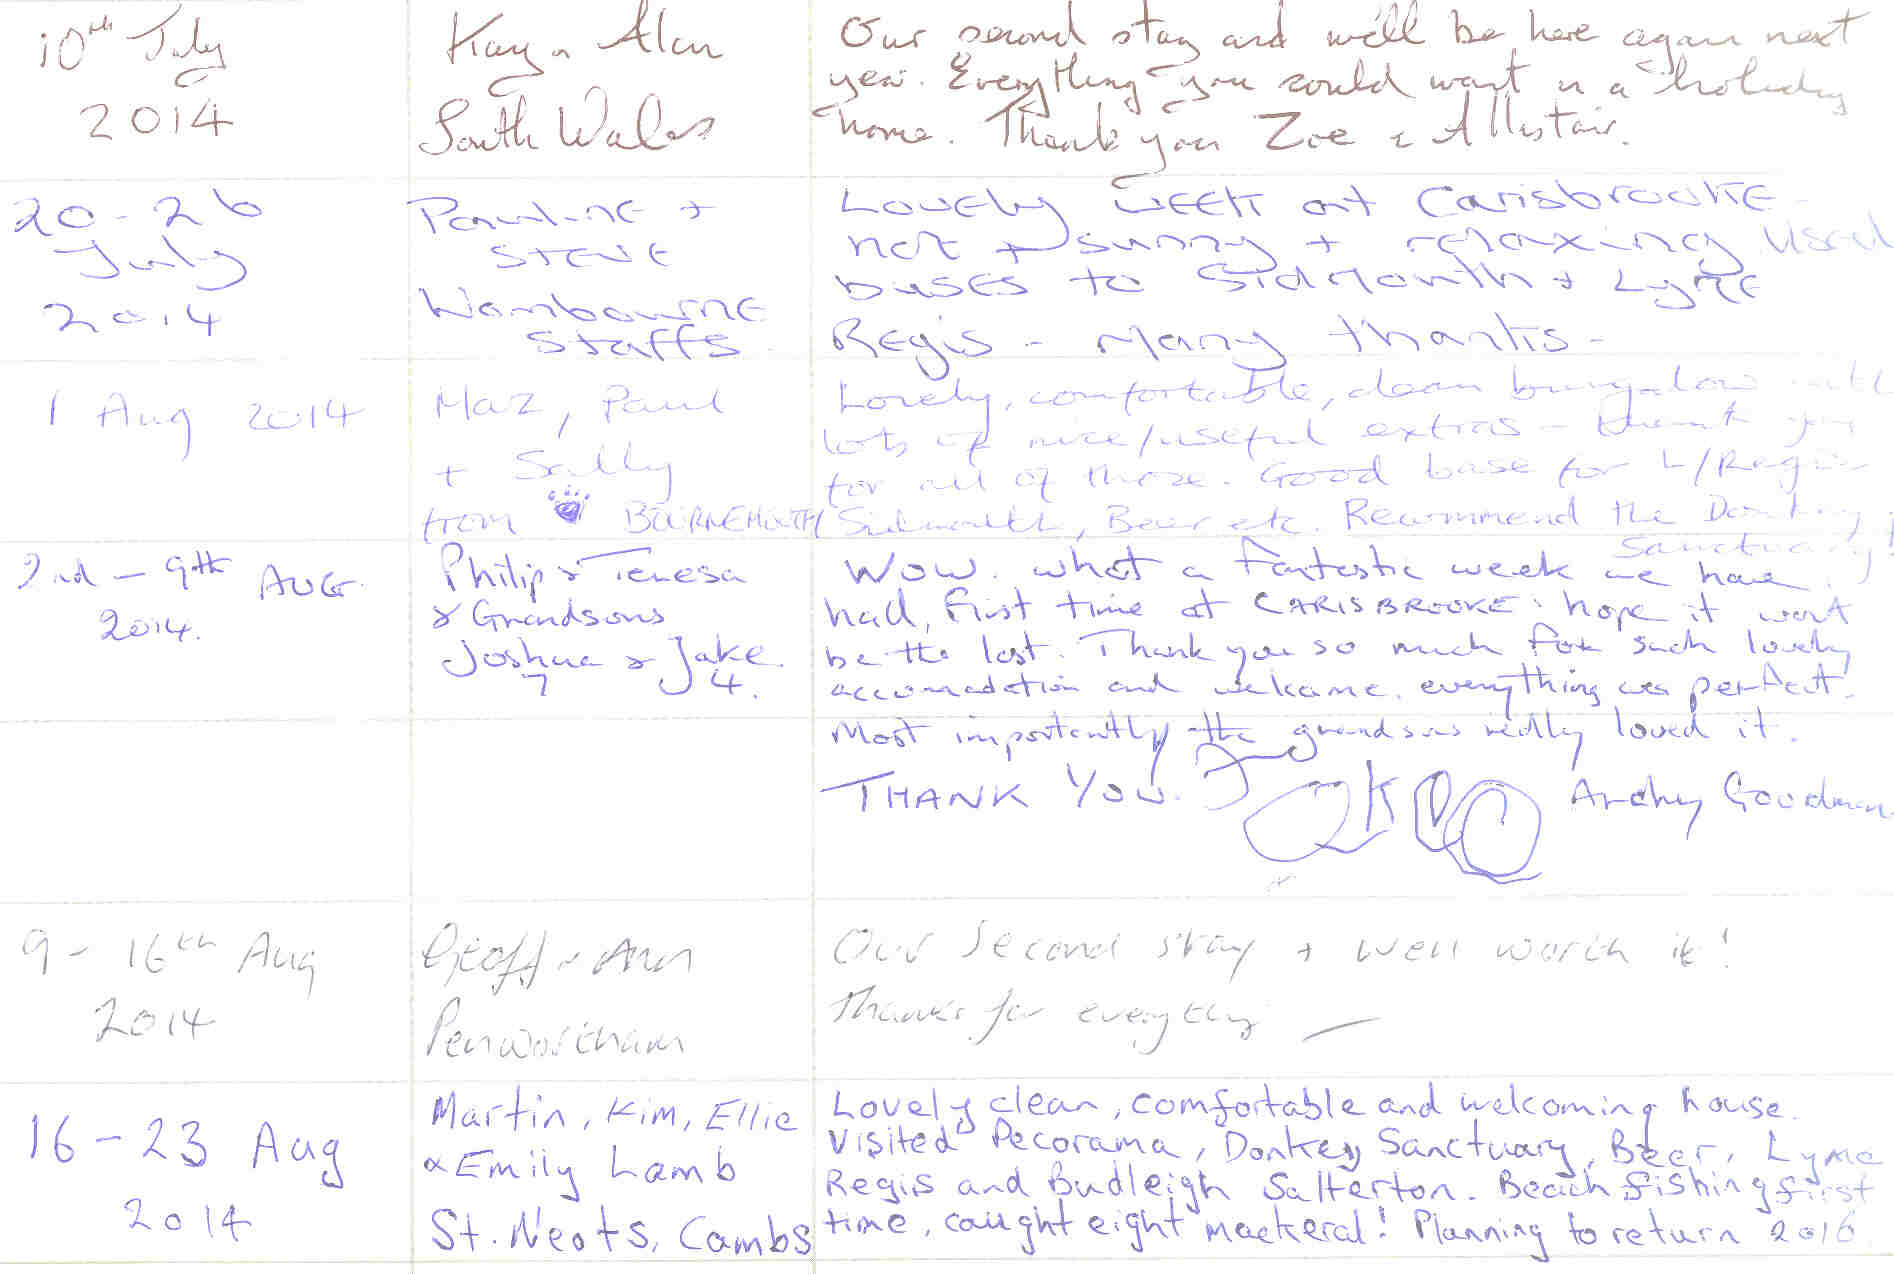 10th July
2014
Kay & Alan
South Wales
Our second stay and we'll be here again next
year. Everything you could want in a holiday
home. Thank you Zoe & Allistair.
20-26
July
2014
Pauline +
Steve
Wombourne
Staffs.
Lovely week at Carisbrooke -
hot + sunny + relaxing. Used
buses to Sidmouth + Lyme
Regis - Many thanks -
1 Aug 2014
Maz, Paul
+ Sally
from BOURNEMOUTH
Lovely, comfortable, clean bungalow with
lots of nice/useful extras - thank you
for all of those. Good base for L/Regis
Sidmouth, Beer etc. Recommend the Donkey
Sanctuary!
2nd - 9th AUG.
2014.
Philip & Teresa
& Grandsons
Joshua & Jake.
7 4.
Wow. what a fantastic week we have
had, first time at CARISBROOKE. hope it wont
be the last. Thank you so much for such lovely
accomadation and welcome. everything was perfect.
Most importantly the grandsons really loved it.
THANK YOU. Archy Goodman
9 - 16th Aug
2014
Geoff & Ann
Penwortham
Our Second stay + well worth it!
Thanks for everything
16-23 Aug
2014
Martin, Kim, Ellie
& Emily Lamb
St. Neots, Cambs
Lovely clean, comfortable and welcoming house.
Visited Pecorama, Donkey Sanctuary, Beer, Lyme
Regis and Budleigh Salterton. Beach fishing first
time, caught eight mackeral! Planning to return 2016